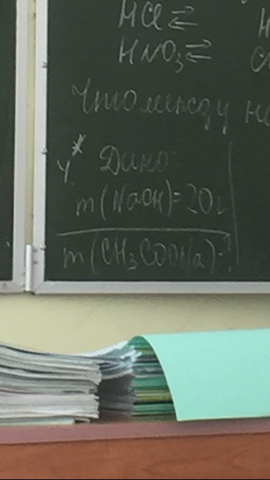 HCl ⇄ H
HNO₃ ⇄ C
Что между не
4* Дано:
m(NaOH)=20г
m(CH₃COONa)-?